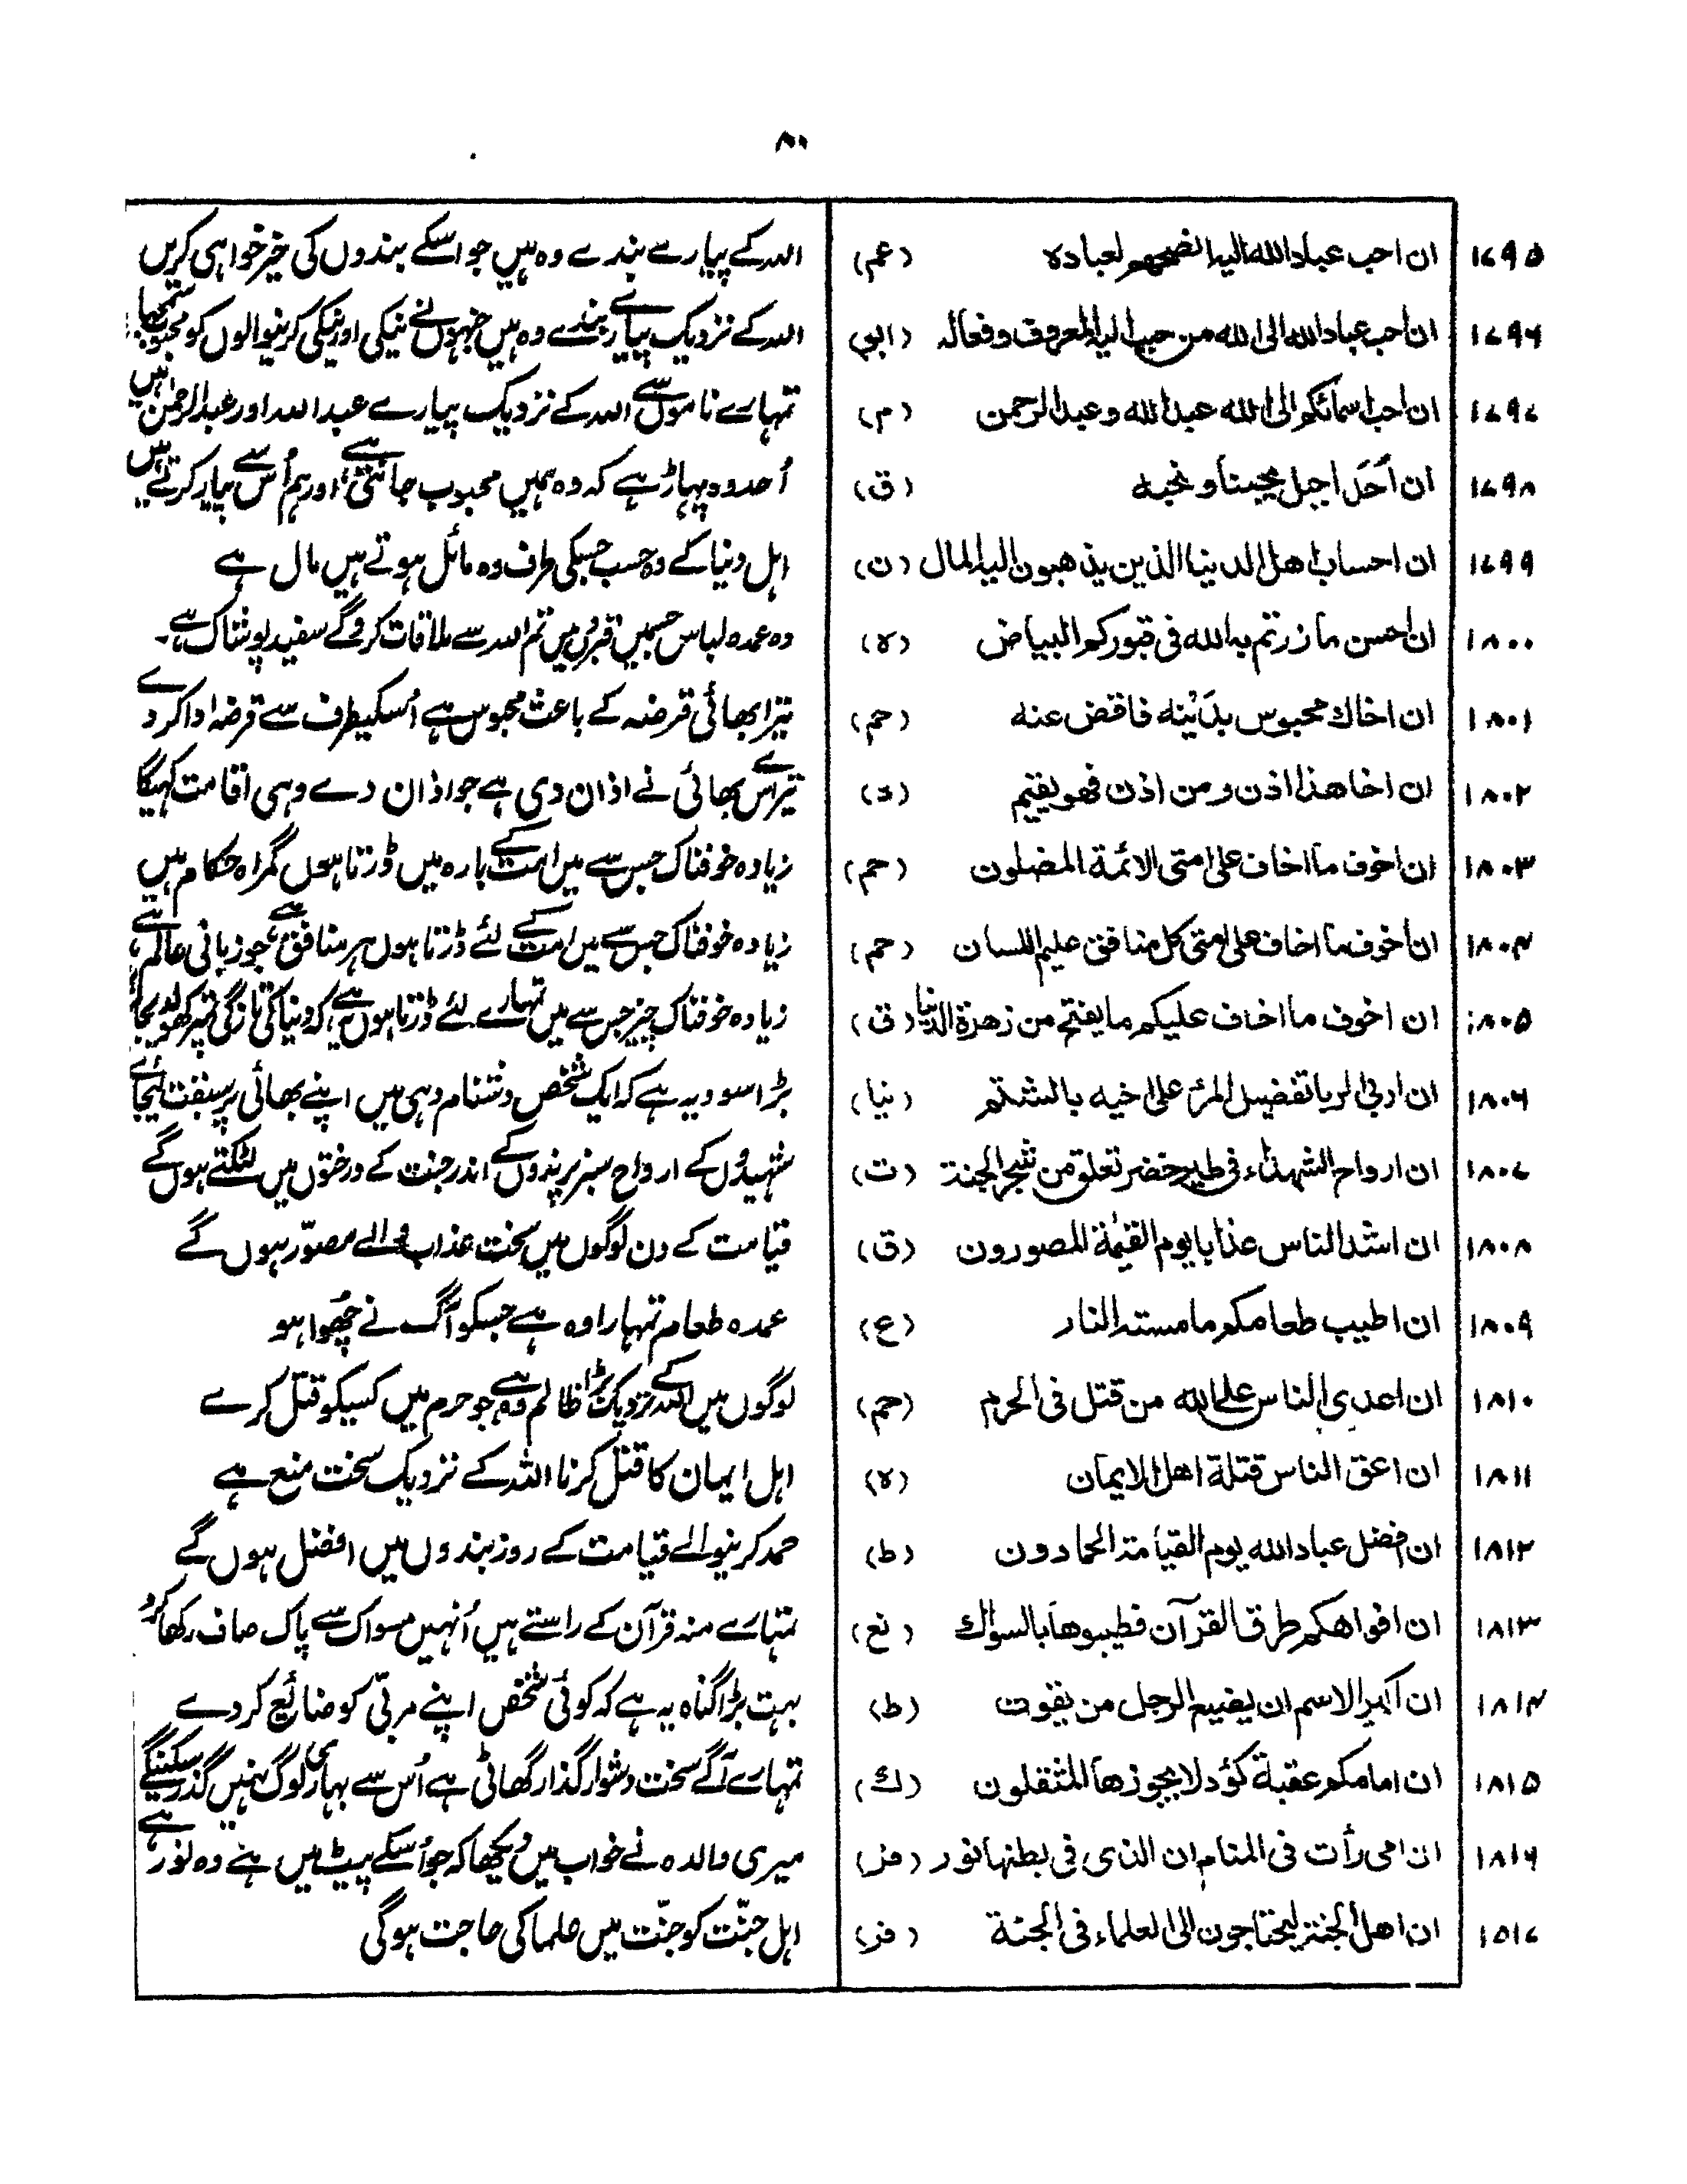 ۸۰
۱۷۹۵ ان احب عباد الله الیه انصحهم لعباده (عم) اللہ کے پیارے بندے وہ ہیں جو اسکے بندوں کی خیر خواہی کریں
۱۷۹۶ ان احب عباد الله الی الله من حبب الیه المعروف وفعاله (ابو) اللہ کے نزدیک پیارے بندے وہ ہیں جنہوں نے نیکی اور نیکی کرنیوالوں کو محبوب سمجھا
۱۷۹۷ ان احب اسمائکم الی الله عبد الله وعبد الرحمن (م) تمہارے ناموں سے اللہ کے نزدیک پیارے عبد اللہ اور عبد الرحمن ہیں
۱۷۹۸ ان اُحَداً جبل یحبنا ونحبه (ق) اُحد وہ پہاڑ ہے کہ وہ ہمیں محبوب جانتا ہے اور ہم اُس سے پیار کرتے ہیں
۱۷۹۹ ان احساب اهل الدنیا الذین یذهبون الیه المال (ن) اہل دنیا کے وہ حسب جسکی طرف وہ مائل ہوتے ہیں مال ہے
۱۸۰۰ ان احسن ما زرتم به الله فی قبورکم البیاض (ہ) وہ عمدہ لباس جسمیں قبروں میں تم اللہ سے ملاقات کروگے سفید پوشاک ہے۔
۱۸۰۱ ان اخاك محبوس بدَیْنه فاقض عنه (حم) تیرا بھائی قرضہ کے باعث محبوس ہے اُسکیطرف سے قرضہ ادا کر دے
۱۸۰۲ ان اخا هذا اذن ومن اذن فهو یقیم (د) تیرے اس بھائی نے اذان دی ہے جو اذان دے وہی اقامت کہیگا
۱۸۰۳ ان اخوف ما اخاف علی امتی الائمة المضلون (حم) زیادہ خوفناک جس سے میں امت کے بارہ میں ڈرتا ہوں گمراہ حکام ہیں
۱۸۰۴ ان اخوف ما اخاف علی امتی کل منافق علیم اللسان (حم) زیادہ خوفناک جس سے میں امت کے لئے ڈرتا ہوں ہر منافق ہے جو زبانی عالم ہے
۱۸۰۵ ان اخوف ما اخاف علیکم ما یفتح من زهرة الدنیا (ق) زیادہ خوفناک چیز جس سے میں تمہارے لئے ڈرتا ہوں یہ ہے کہ دنیا کی تازگی تمپر کھولدیجائے
۱۸۰۶ ان اربی الربا تفضیل المرء علی اخیه بالشتم (نیا) بڑا سود یہ ہے کہ ایک شخص دشنام دہی میں اپنے بھائی پر سبقت لیجائے
۱۸۰۷ ان ارواح الشهداء فی طیر خضر تعلق من شجر الجنة (ت) شہیدوں کے ارواح سبز پرندوں کے اندر جنت کے درختوں میں لٹکتے ہوں گے
۱۸۰۸ ان اشد الناس عذابا یوم القیٰمة المصورون (ق) قیامت کے دن لوگوں میں سخت عذاب والے مصوّر ہوں گے
۱۸۰۹ ان اطیب طعامکم ما مسته النار (ع) عمدہ طعام تمہارا وہ ہے جسکو آگ نے چھُوا ہو
۱۸۱۰ ان اعدی الناس علی الله من قتل فی الحرم (حم) لوگوں میں اللہ کے نزدیک بڑا ظالم وہ ہے جو حرم میں کسیکو قتل کرے
۱۸۱۱ ان اعق الناس قتلة اهل الایمان (ہ) اہل ایمان کا قتل کرنا اللہ کے نزدیک سخت منع ہے
۱۸۱۲ ان افضل عباد الله یوم القیامة الحمادون (ط) حمد کرنیوالے قیامت کے روز بندوں میں افضل ہوں گے
۱۸۱۳ ان افواهکم طرق القرآن فطیبوها بالسواك (نع) تمہارے منہ قرآن کے راستے ہیں اُنہیں مسواک سے پاک صاف رکھا کرو
۱۸۱۴ ان اکبر الاسم ان یضیع الرجل من یقوت (ط) بہت بڑا گناہ یہ ہے کہ کوئی شخص اپنے مربّی کو ضائع کر دے
۱۸۱۵ ان امامکم عقبة کؤدلا یجوزها المثقلون (ك) تمہارے آگے سخت دشوار گذار گھاٹی ہے اُس سے بہاری لوگ نہیں گذر سکینگے
۱۸۱۶ ان امی رأت فی المنام ان الذی فی بطنها نور (فر) میری والدہ نے خواب میں دیکھا کہ جو اُسکے پیٹ میں ہے وہ نور ہے
۱۵۱۷ ان اهل الجنة لیحتاجون الی العلماء فی الجنة (فر) اہل جنّت کو جنّت میں علما کی حاجت ہوگی